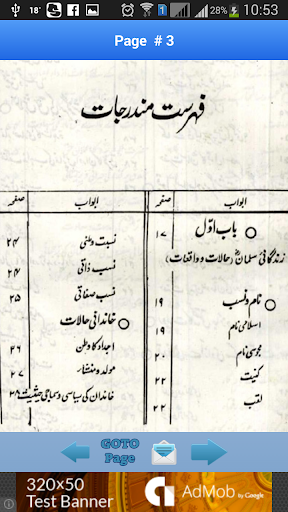 18°
28%
10:53
Page # 3
فہرست مندرجات
ابواب صفحہ
باب اوّل ۱۷
زندگانیٔ سلمانؓ (حالات و واقعات)
نام و نسب ۱۹
اسلامی نام ۱۹
مجوسی نام ۲۰
کنیت ۲۲
لقب ۲۲
ابواب صفحہ
نسبت وطنی ۲۴
نسب ذاتی ۲۴
نسب صفاتی ۲۵
خاندانی حالات
اجداد کا وطن ۲۶
مولد و منشاء ۲۷
خاندان کی سیاسی و سماجی حیثیت ۲۸
GOTO
Page
320x50
Test Banner
AdMob by Google